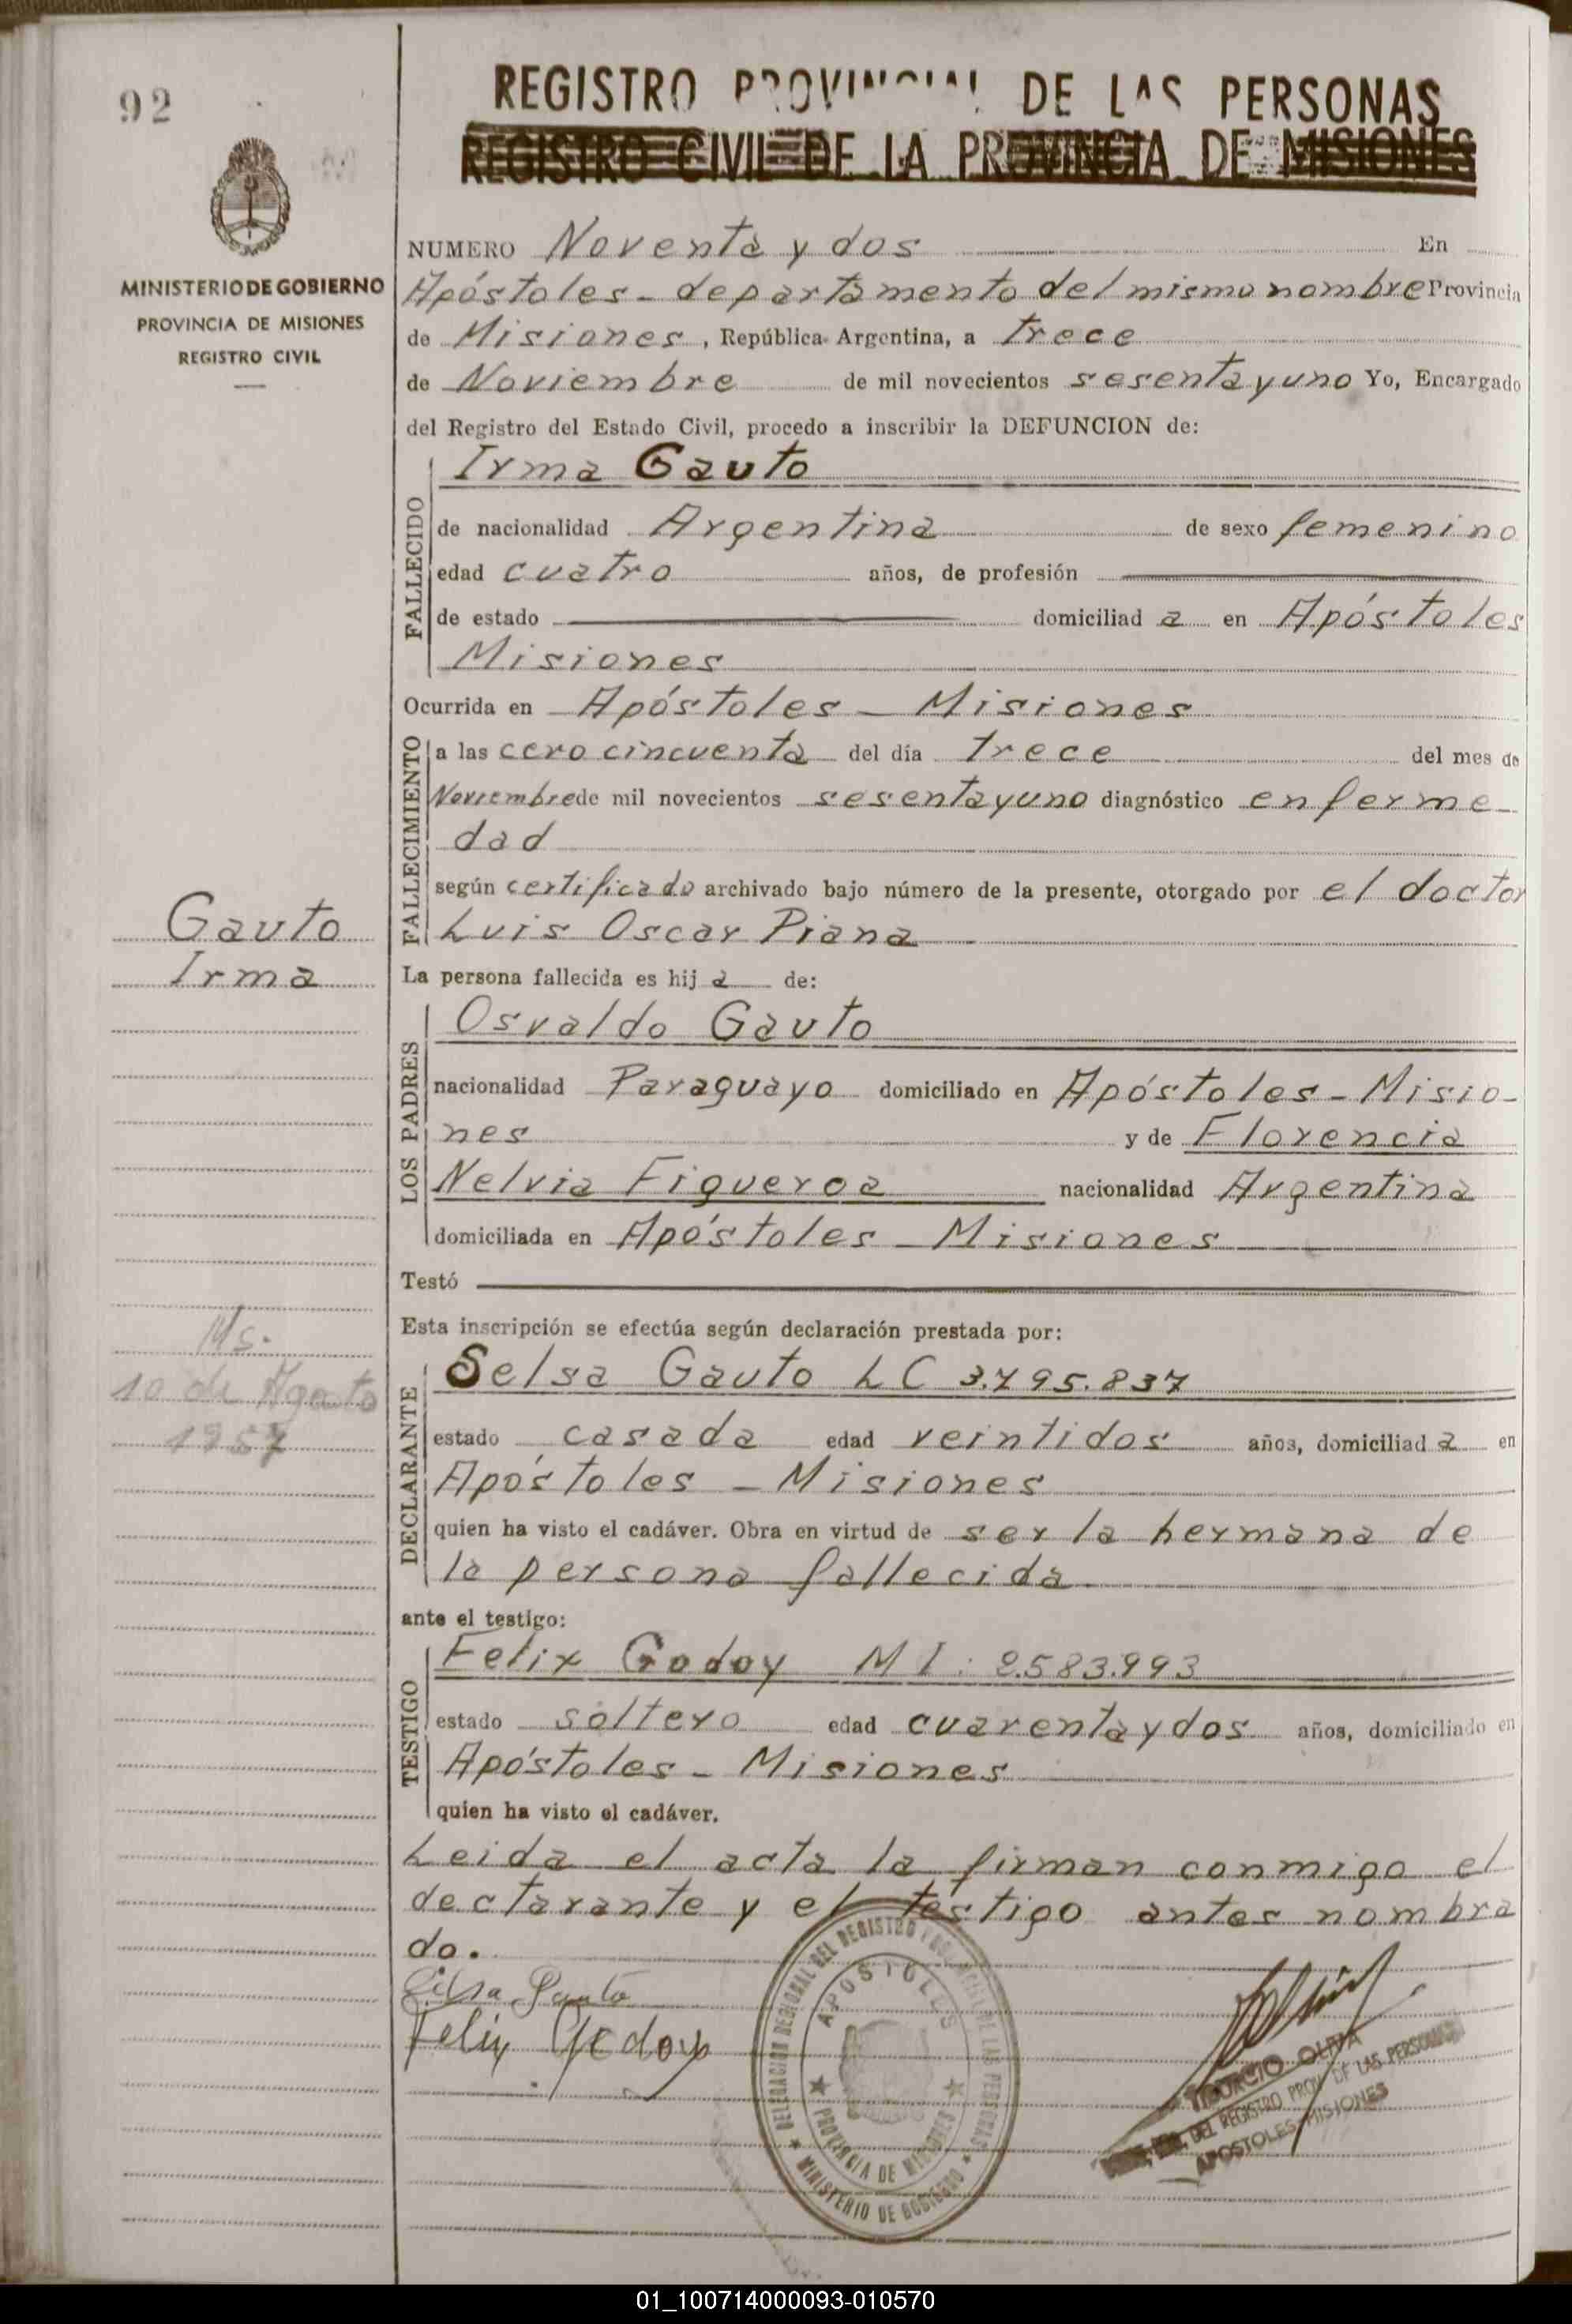 92
REGISTRO PROVINCIAL DE LAS PERSONAS
REGISTRO CIVIL DE LA PROVINCIA DE MISIONES
MINISTERIO DE GOBIERNO
PROVINCIA DE MISIONES
REGISTRO CIVIL
NUMERO Noventa y dos En
Apóstoles - departamento del mismo nombre Provincia
de Misiones, República Argentina, a trece
de Noviembre de mil novecientos sesenta y uno Yo, Encargado
del Registro del Estado Civil, procedo a inscribir la DEFUNCION de:
FALLECIDO
Irma Gauto
de nacionalidad Argentina de sexo femenino
edad cuatro años, de profesión
de estado domiciliad a en Apóstoles
Misiones
Ocurrida en Apóstoles - Misiones
FALLECIMIENTO
a las cero cincuenta del día trece del mes de
Noviembre de mil novecientos sesenta y uno diagnóstico enferme-
dad
según certificado archivado bajo número de la presente, otorgado por el doctor
Luis Oscar Piana
Gauto
Irma
La persona fallecida es hij a de:
LOS PADRES
Osvaldo Gauto
nacionalidad Paraguayo domiciliado en Apóstoles - Misio-
nes y de Florencia
Nelvia Figueroa nacionalidad Argentina
domiciliada en Apóstoles - Misiones
Testó
Ms.
10 de Agosto
1957
Esta inscripción se efectúa según declaración prestada por:
DECLARANTE
Selsa Gauto LC 3.795.837
estado casada edad veintidos años, domiciliad a en
Apóstoles - Misiones
quien ha visto el cadáver. Obra en virtud de ser la hermana de
la persona fallecida
ante el testigo:
TESTIGO
Felix Godoy M I: 2.583.993
estado soltero edad cuarenta y dos años, domiciliado en
Apóstoles - Misiones
quien ha visto el cadáver.
Leida el acta la firman conmigo el
declarante y el testigo antes nombra
do.
Gauto
Felix Godoy
DELEGACION REGIONAL DEL REGISTRO PROVINCIAL DE LAS PERSONAS
APOSTOLES
PROVINCIA DE MISIONES
MINISTERIO DE GOBIERNO
TIBURCIO OLIVA
DEL REGISTRO PROV. DE LAS PERSONAS
APOSTOLES-MISIONES
01_100714000093-010570